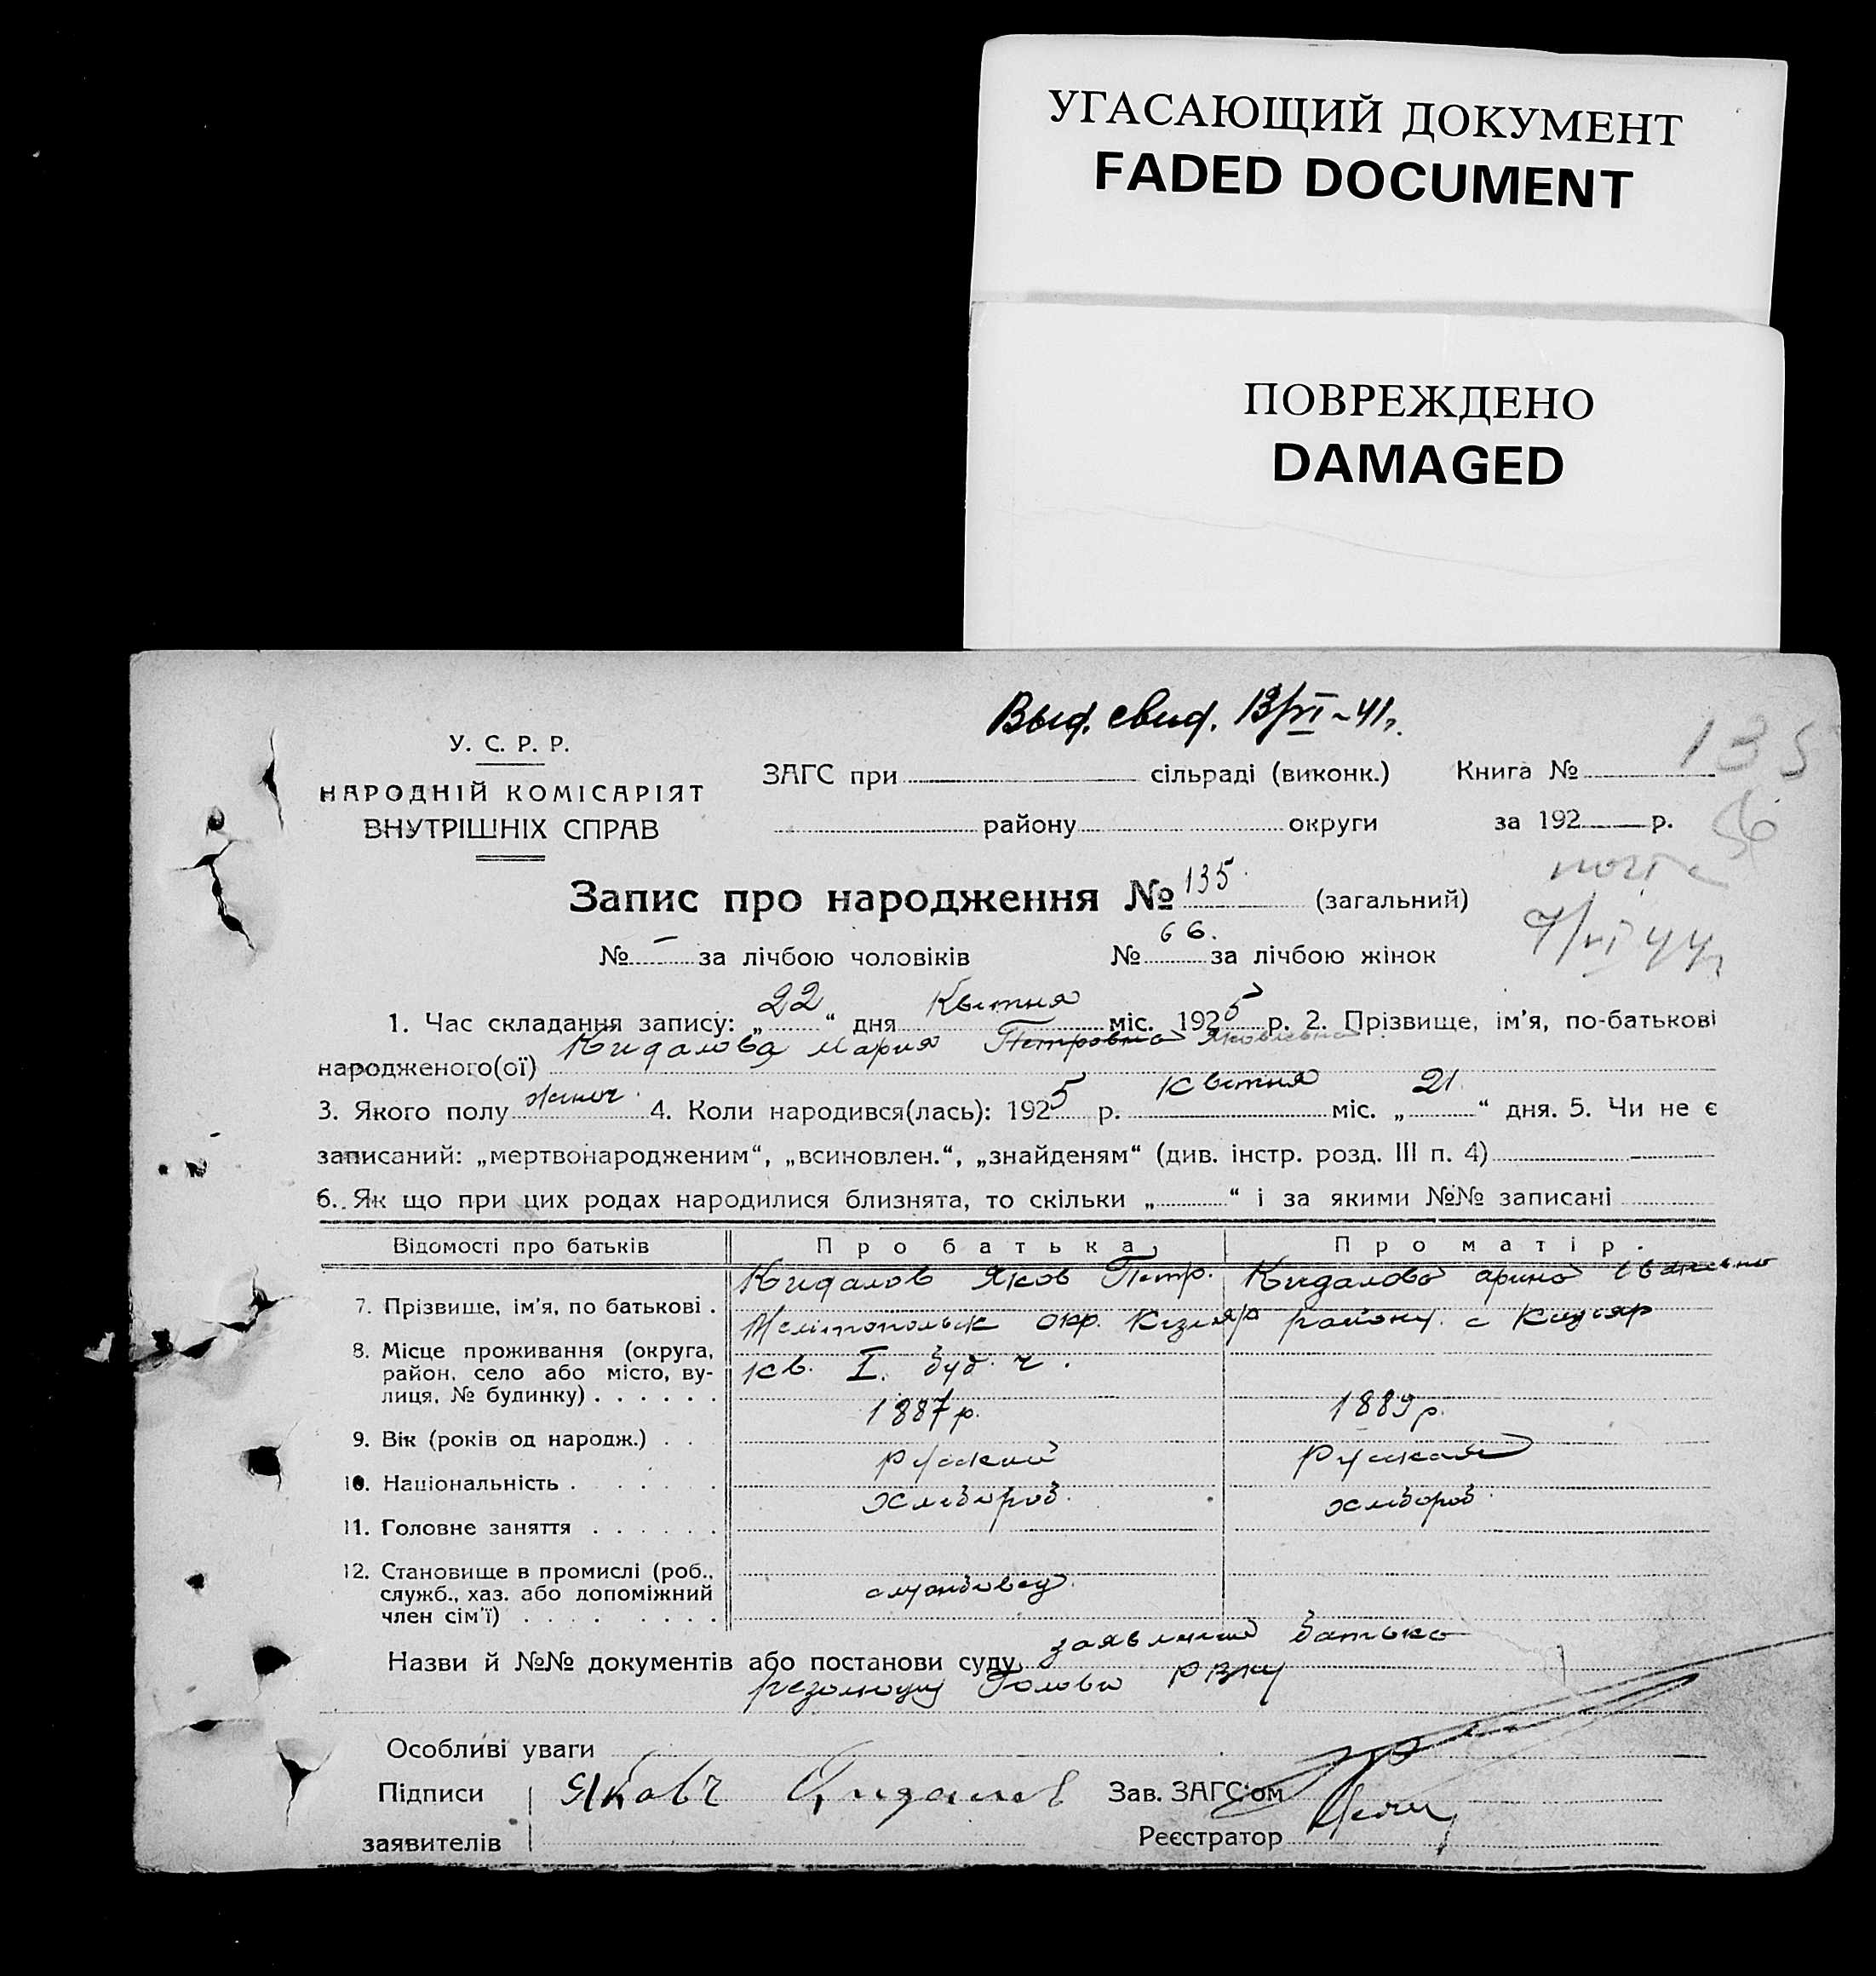 УГАСАЮЩИЙ ДОКУМЕНТ
FADED DOCUMENT
ПОВРЕЖДЕНО
DAMAGED
Выд. свид. 13/VI-41г.
135
У. С. Р. Р.
НАРОДНІЙ КОМІСАРІЯТ
ВНУТРІШНІХ СПРАВ
ЗАГС при сільраді (виконк.) Книга №
району округи за 192 р.
56
Запис про народження № 135. (загальний)
7/VI 44г
№ – за лічбою чоловіків № 66. за лічбою жінок
1. Час складання запису: „22“ дня Квітня міс. 1925 р. 2. Прізвище, ім’я, по-батькові
народженого(ої) Кидалова Мария Петровна Яковлевна
3. Якого полу жіноч. 4. Коли народився(лась): 1925 р. Квітня міс. „21“ дня. 5. Чи не є
записаний: „мертвонародженим“, „всиновлен.“, „знайденям“ (див. інстр. розд. III п. 4)
6. Як що при цих родах народилися близнята, то скільки „ “ і за якими №№ записані
Відомості про батьків Про батька Про матір.
7. Прізвище, ім’я, по батькові . Кидалов Яков Петр. Кидалова арина Ивановна
8. Місце проживання (округа, Мелітопольск окр. Кизіяр району. с Кизіяр
район, село або місто, ву- кв. I. буд. ч.
лиця, № будинку) . . . . . .
9. Вік (років од народж.) . . 1887 р. 1889 р.
10. Національність . . . . . . Русский Русская
11. Головне заняття . . . . . . хлібороб. хлібороб.
12. Становище в промислі (роб.,
служб., хаз. або допоміжний
член сім’ї) . . . . . . . .
Назви й №№ документів або постанови суду заявление батька
резолюция Голови РВКу
Особливі уваги
Підписи Яковъ Кидалов Зав. ЗАГС’ом
заявителів Реєстратор